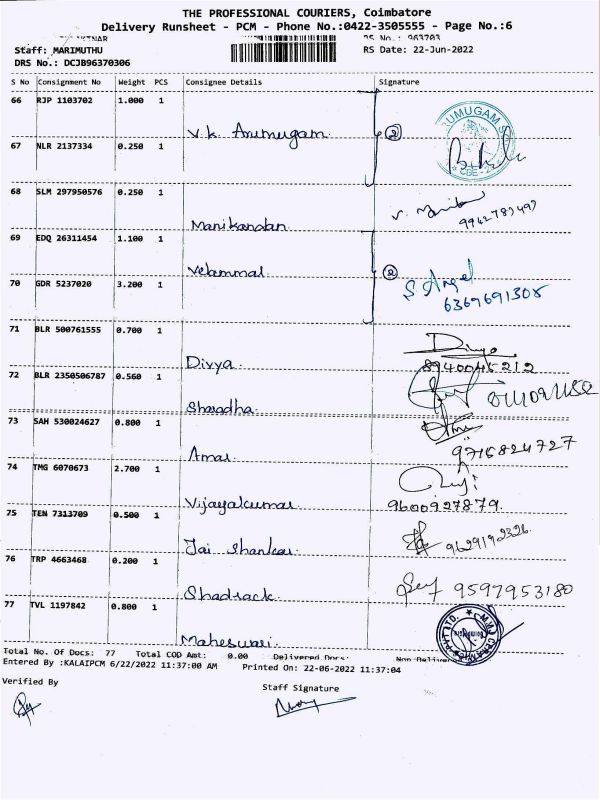 THE PROFESSIONAL COURIERS, Coimbatore
Delivery Runsheet - PCM - Phone No.:0422-3505555 - Page No.:6
Staff: MARIMUTHU
RS Date: 22-Jun-2022
DRS No.: DCJB96370306
S No Consignment No Weight PCS Consignee Details Signature
66 RJP 1103702 1.000 1
V.K. Arumugam 2
67 NLR 2137334 0.250 1
68 SLM 297950576 0.250 1
Manikandan
69 EDQ 26311454 1.100 1
Velammal 2
70 GDR 5237020 3.200 1
S Angel
6369691308
71 BLR 500761555 0.700 1
Divya Divya
8940045212
72 BLR 2350506787 0.560 1
Sharadha
73 SAH 530024627 0.800 1
Amar
9716824727
74 TMG 6070673 2.700 1
Vijayakumar 9600927879.
75 TEN 7313709 0.500 1
Jai Shankar 9629192326
76 TRP 4663468 0.200 1
9597953180
Shadrack
77 TVL 1197842 0.800 1
Maheswari
Total No. Of Docs: 77 Total COD Amt: 0.00 Delivered Docs:
Entered By :KALAIPCM 6/22/2022 11:37:00 AM Printed On: 22-06-2022 11:37:04
Verified By
Staff Signature